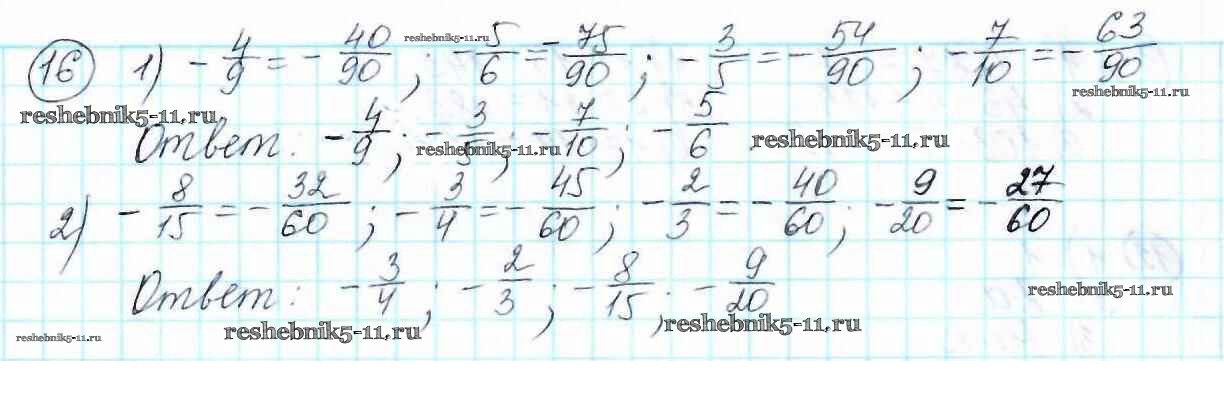 16 1) -4/9 = -40/90; -5/6 = -75/90; -3/5 = -54/90; -7/10 = -63/90
reshebnik5-11.ru
reshebnik5-11.ru
reshebnik5-11.ru
Ответ: -4/9; -3/5; -7/10; -5/6
reshebnik5-11.ru
reshebnik5-11.ru
2) -8/15 = -32/60; -3/4 = -45/60; -2/3 = -40/60; -9/20 = -27/60
Ответ: -3/4; -2/3; -8/15; -9/20
reshebnik5-11.ru
reshebnik5-11.ru
reshebnik5-11.ru
reshebnik5-11.ru